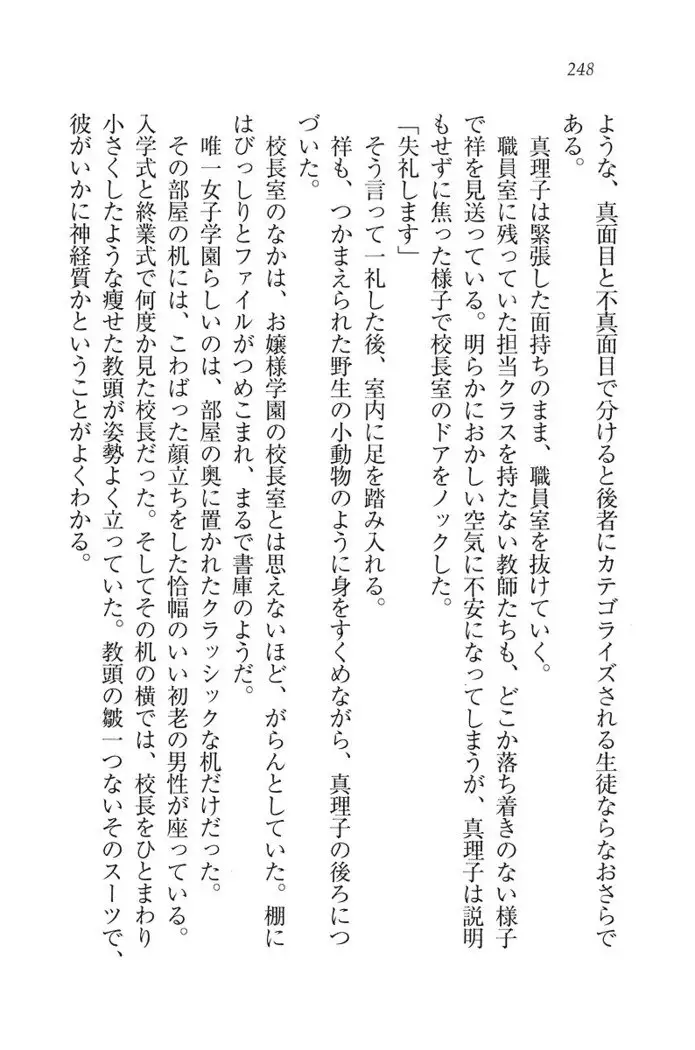 248
ような、真面目と不真面目で分けると後者にカテゴライズされる生徒ならなおさらで
ある。
　真理子は緊張した面持ちのまま、職員室を抜けていく。
　職員室に残っていた担当クラスを持たない教師たちも、どこか落ち着きのない様子
で祥を見送っている。明らかにおかしい空気に不安になってしまうが、真理子は説明
もせずに焦った様子で校長室のドアをノックした。
「失礼します」
　そう言って一礼した後、室内に足を踏み入れる。
　祥も、つかまえられた野生の小動物のように身をすくめながら、真理子の後ろにつ
づいた。
　校長室のなかは、お嬢様学園の校長室とは思えないほど、がらんとしていた。棚に
はびっしりとファイルがつめこまれ、まるで書庫のようだ。
　唯一女子学園らしいのは、部屋の奥に置かれたクラッシックな机だけだった。
　その部屋の机には、こわばった顔立ちをした恰幅のいい初老の男性が座っている。
入学式と終業式で何度か見た校長だった。そしてその机の横では、校長をひとまわり
小さくしたような痩せた教頭が姿勢よく立っていた。教頭の皺一つないそのスーツで、
彼がいかに神経質かということがよくわかる。